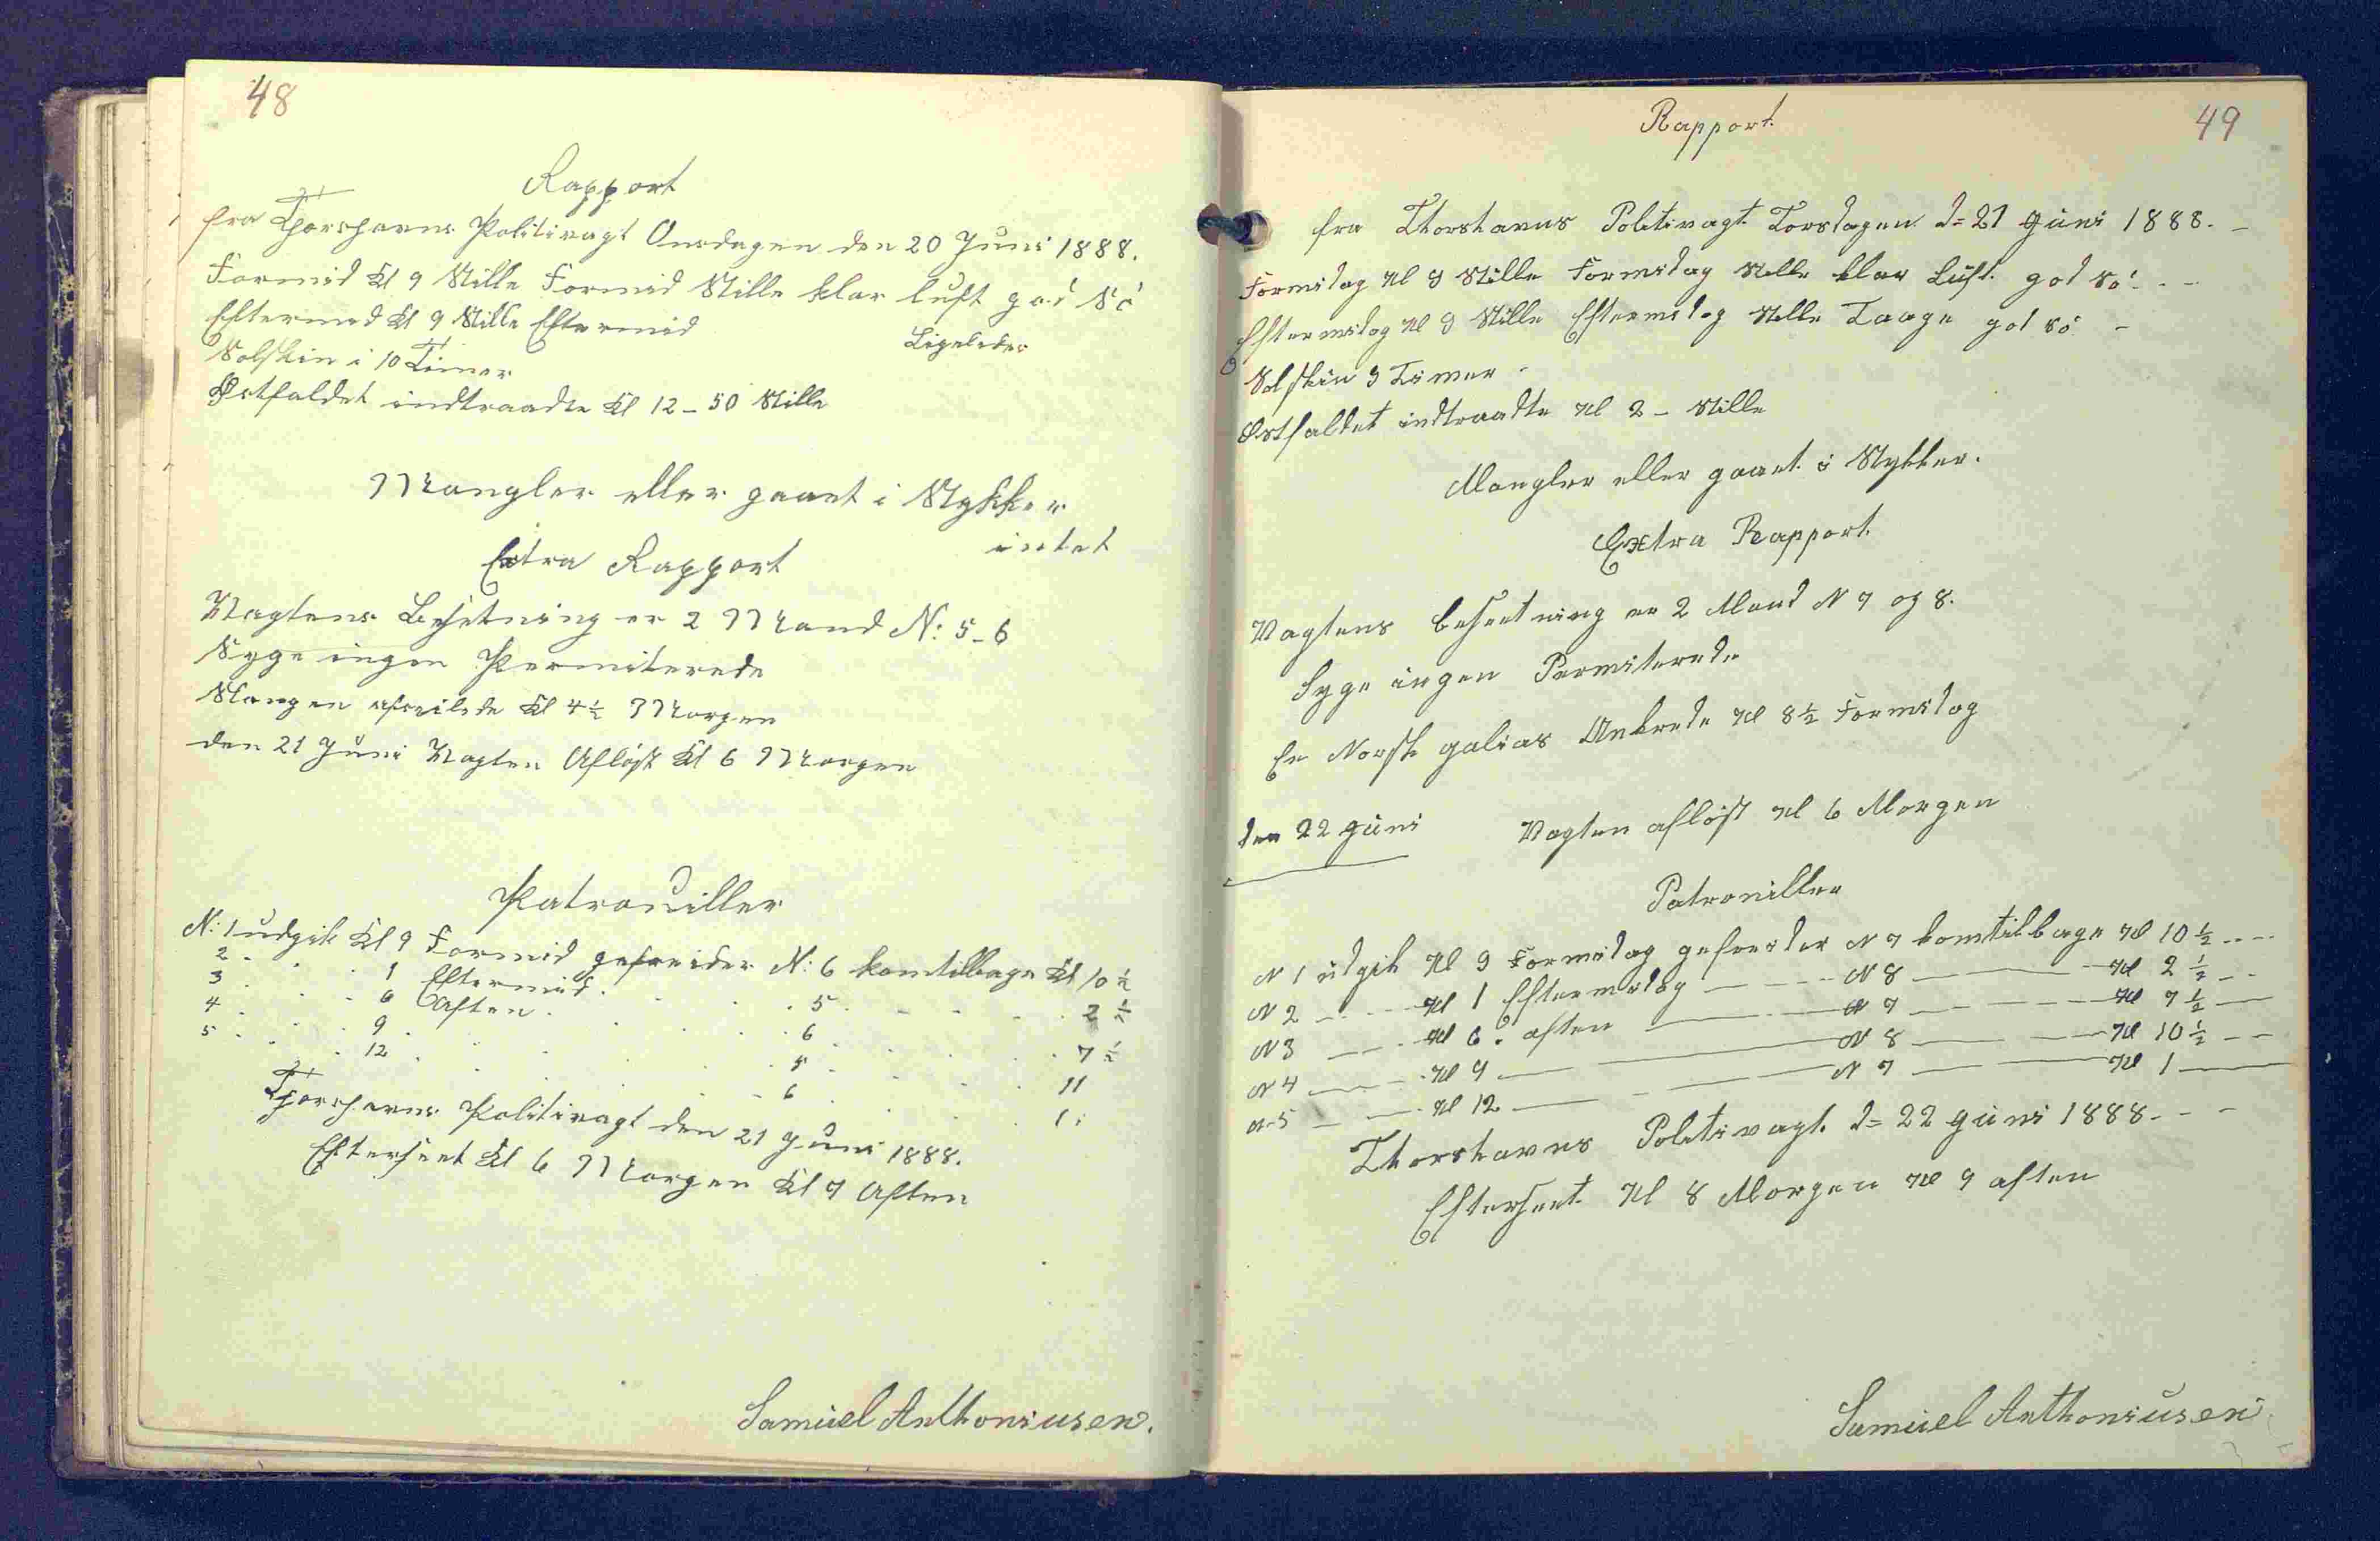 48
Rapport
fra Thorshavns Politivagt Onsdagen den 20 Juni 1888.
Formid Kl 9 Stille Formid Stille klar luft god Sö
Eftermid Kl 9 Stille Eftermid Ligeledes
Solskin i 10 Timer
Østfaldet indtraadte Kl 12-50 Stille
Mangler eller gaaet i Stykker
intet
Extra Rapport
Vagtens Besetning er 2 Mand N: 5-6
Syge ingen Permiterede
Slangen afseilede Kl 4½ Morgen
den 21 Juni Vagten Afløst Kl 6 Morgen
Patrouiller
N: 1 udgik Kl 9 Formid gefreider N: 6 komtilbage Kl 10½
2 . . . 1 Eftermid . . . 5 . . . 2½
3 . . . 6 Aften . . . 6 . . . 7½
4 . . . 9 . . . 5 . . . 11
5 . . . 12 . . . 6 . . . 1:
Thorshavns Politivagt den 21 Juni 1888.
Efterseet Kl 6 Morgen Kl 9 Aften
Samuel Anthoniusen.
49
Rapport
fra Thorshavns Politivagt Torsdagen d= 21 Juni 1888. -
Formidag Kl 9 Stille Formidag Stille klar Luft god Sö - -
Eftermidag Kl 9 Stille Eftermidag Stille Taage god Sö -
Solskin 3 Timer -
Østfaldet indtraadte Kl 2 - Stille
Mangler eller gaaet i Stykker.
Extra Rapport
Vagtens besætning er 2 Mand N 7 og 8.
Syge ingen Permiterede
En Norsk galias Ankrede Kl 8½ Formidag
den 22 Juni Vagten afløst Kl 6 Morgen
Patrouiller
N 1 udgik Kl 9 Formidag gefreider N 7 komtilbage Kl 10½ ----
N 2 --- Kl 1 Eftermidag ---- N 8 ---- Kl 2½ --
N 3 --- Kl 6. aften ---- N 7 ---- Kl 7½ --
N 4 --- Kl 9 ---- N 8 ---- Kl 10½ --
N-5 --- Kl 12 ---- N 7 ---- Kl 1 ---
Thorshavns Politivagt d= 22 Juni 1888 - - -
Efterseet Kl 8 Morgen Kl 9 aften
Samuel Anthoniusen